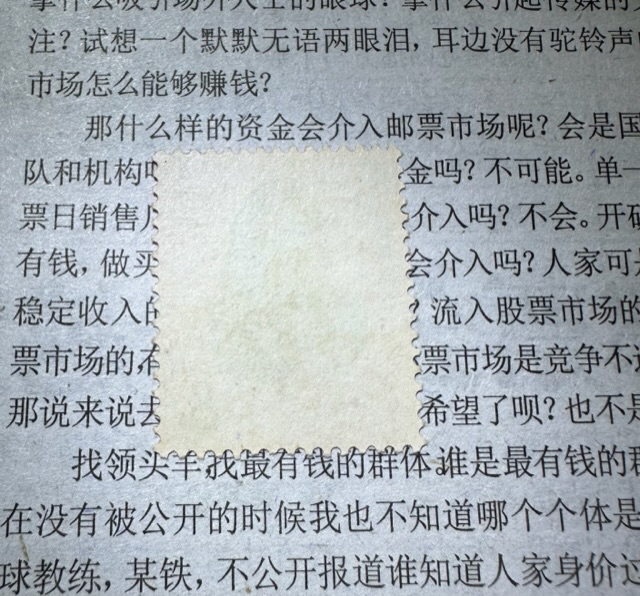 拿什么吸引场外人士的眼球？拿什么引起传媒的
注？试想一个默默无语两眼泪，耳边没有驼铃声
市场怎么能够赚钱？
那什么样的资金会介入邮票市场呢？会是国
队和机构 金吗？不可能。单一
票日销售 介入吗？不会。开
有钱，做买 会介入吗？人家可
稳定收入的 ？流入股票市场的
票市场的 票市场是竞争不
那说来说去 希望了呗？也不是
找领头羊，找最有钱的群体。谁是最有钱的群
在没有被公开的时候我也不知道哪个个体是
球教练，某铁，不公开报道谁知道人家身价过